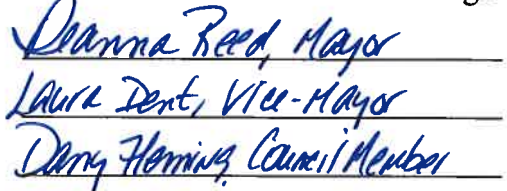 Deanna Reed, Mayor
Laura Dent, Vice-Mayor
Dany Fleming, Council Member